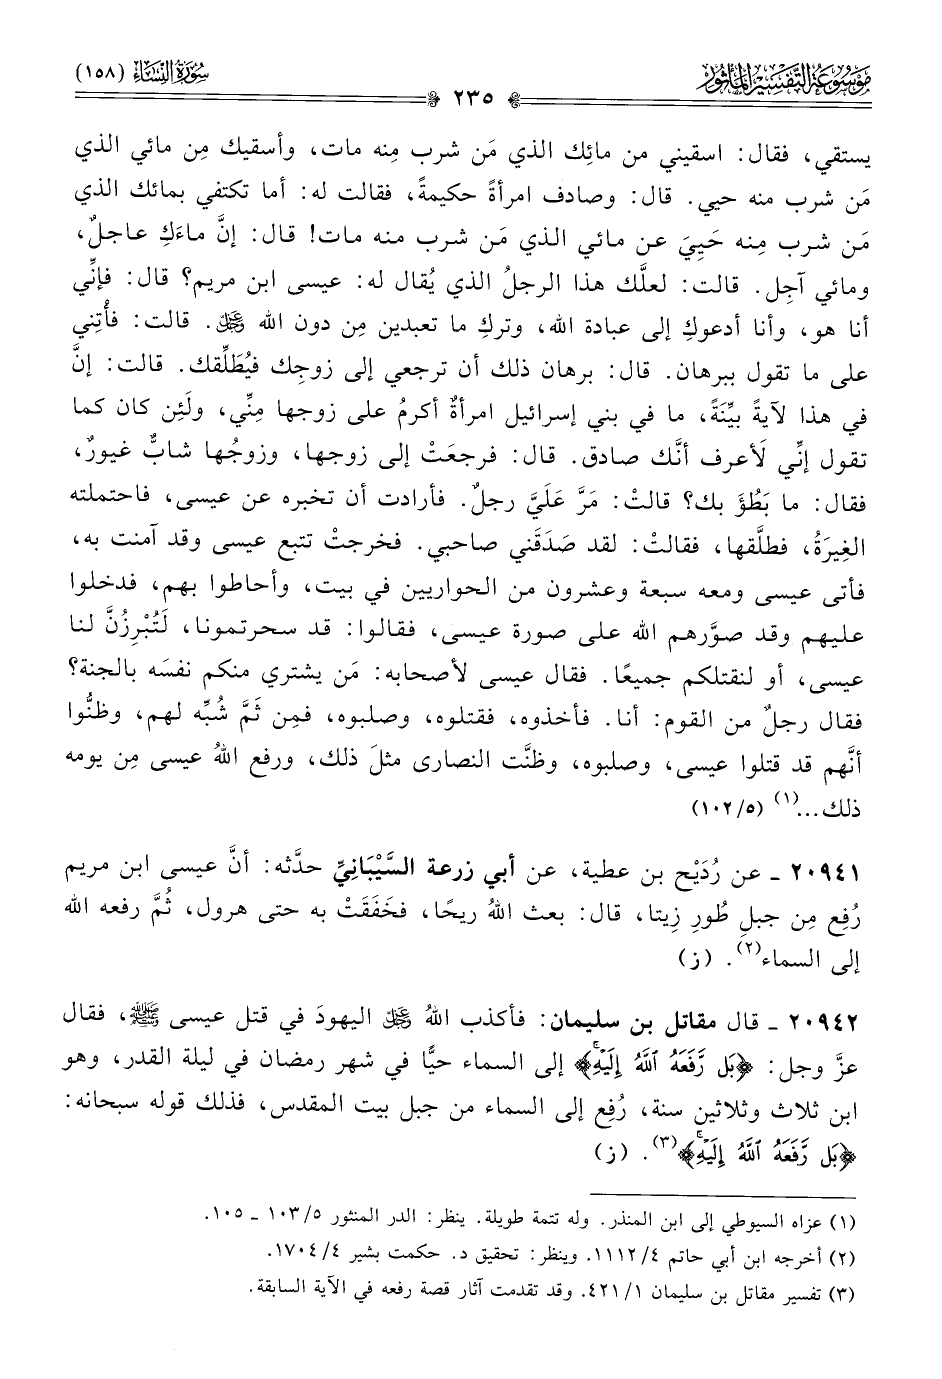 موسوعة التفسير المأثور
٢٣٥
سورة النساء (١٥٨)
يستقي، فقال: اسقيني من مائِك الذي مَن شرب مِنه مات، وأسقيك مِن مائي الذي
مَن شرب منه حيي. قال: وصادف امرأةً حكيمةً، فقالت له: أما تكتفي بمائك الذي
مَن شرب مِنه حَيِيَ عن مائي الذي مَن شرب منه مات! قال: إنَّ ماءَكِ عاجلٌ،
ومائي آجِل. قالت: لعلَّك هذا الرجلُ الذي يُقال له: عيسى ابن مريم؟ قال: فإنِّي
أنا هو، وأنا أدعوكِ إلى عبادة الله، وتركِ ما تعبدين مِن دون الله ﷿. قالت: فأْتِني
على ما تقول ببرهان. قال: برهان ذلك أن ترجعي إلى زوجِك فيُطَلِّقك. قالت: إنَّ
في هذا لآيةً بيِّنَةً، ما في بني إسرائيل امرأةٌ أكرمُ على زوجها مِنِّي، ولَئِن كان كما
تقول إنِّي لَأعرف أنَّك صادق. قال: فرجعَتْ إلى زوجها، وزوجُها شابٌّ غيورٌ،
فقال: ما بَطُؤَ بك؟ قالتْ: مَرَّ عَلَيَّ رجلٌ. فأرادت أن تخبره عن عيسى، فاحتملته
الغِيرَةُ، فطلَّقها، فقالتْ: لقد صَدَقَني صاحبي. فخرجتْ تتبع عيسى وقد آمنت به،
فأتى عيسى ومعه سبعة وعشرون من الحواريين في بيت، وأحاطوا بهم، فدخلوا
عليهم وقد صوَّرهم الله على صورة عيسى، فقالوا: قد سحرتمونا، لَتُبْرِزُنَّ لنا
عيسى، أو لنقتلكم جميعًا. فقال عيسى لأصحابه: مَن يشتري منكم نفسَه بالجنة؟
فقال رجلٌ من القوم: أنا. فأخذوه، فقتلوه، وصلبوه، فمِن ثَمَّ شُبِّه لهم، وظنُّوا
أنَّهم قد قتلوا عيسى، وصلبوه، وظنَّت النصارى مثلَ ذلك، ورفع اللهُ عيسى مِن يومه
ذلك...(١) (١٠٢/٥)
٢٠٩٤١ ـ عن رُدَيْح بن عطية، عن أبي زرعة السَّيْبَانِيِّ حدَّثه: أنَّ عيسى ابن مريم
رُفِع مِن جبلِ طُورِ زِيتا، قال: بعث اللهُ ريحًا، فخَفَقَتْ به حتى هرول، ثُمَّ رفعه الله
إلى السماء(٢). (ز)
٢٠٩٤٢ ـ قال مقاتل بن سليمان: فأكذب اللهُ ﷿ اليهودَ في قتل عيسى ﷺ، فقال
عزَّ وجل: ﴿بَل رَّفَعَهُ ٱللَّهُ إِلَيْهِۚ﴾ إلى السماء حيًّا في شهر رمضان في ليلة القدر، وهو
ابن ثلاث وثلاثين سنة، رُفِع إلى السماء من جبل بيت المقدس، فذلك قوله سبحانه:
﴿بَل رَّفَعَهُ ٱللَّهُ إِلَيْهِۚ﴾(٣). (ز)
(١) عزاه السيوطي إلى ابن المنذر. وله تتمة طويلة. ينظر: الدر المنثور ١٠٣/٥ ـ ١٠٥.
(٢) أخرجه ابن أبي حاتم ١١١٢/٤. وينظر: تحقيق د. حكمت بشير ١٧٠٤/٤.
(٣) تفسير مقاتل بن سليمان ٤٢١/١. وقد تقدمت آثار قصة رفعه في الآية السابقة.